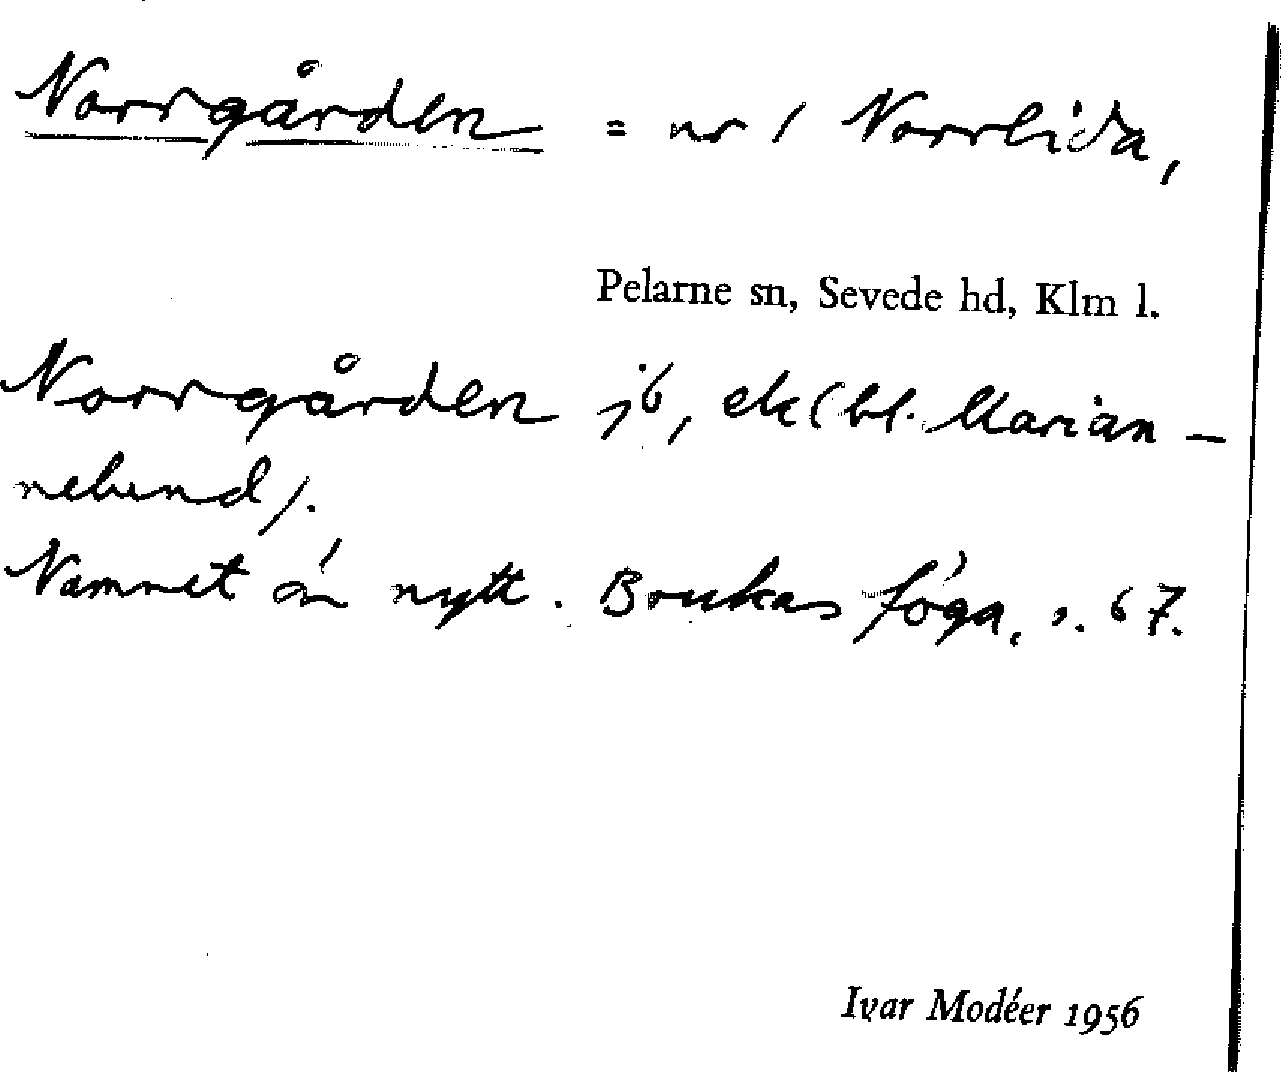 Norrgården = nr 1 Norrlida,
Pelarne sn, Sevede hd, Klm l.
Norrgården jb, ek (bl. Marian-
nelund).
Namnet är nytt. Brukas föga. s. 67.
Ivar Modéer 1956